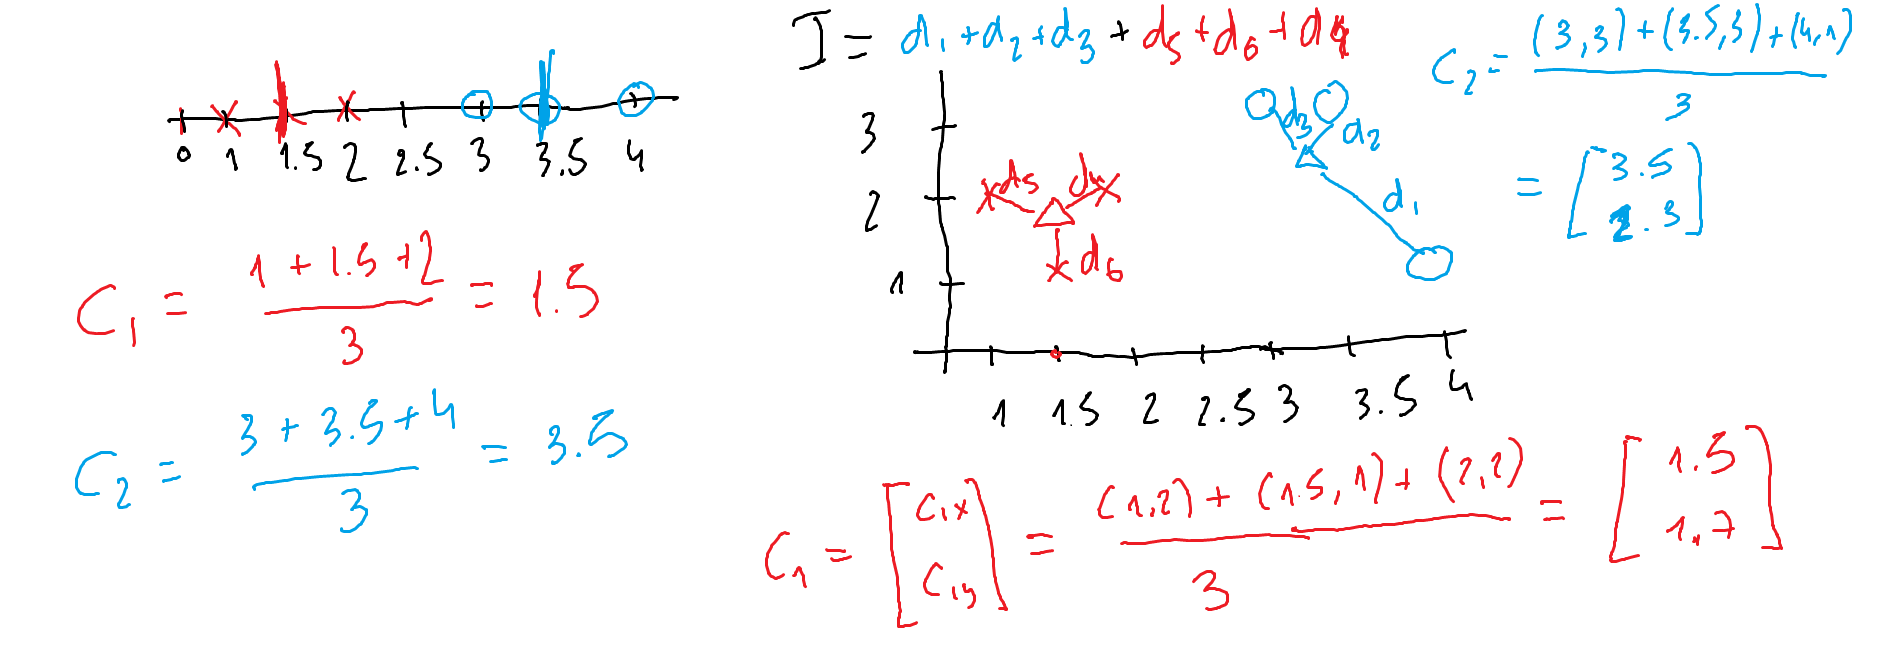 0 1 1.5 2 2.5 3 3.5 4
C₁ = (1 + 1.5 + 2) / 3 = 1.5
C₂ = (3 + 3.5 + 4) / 3 = 3.5
I = d₁ + d₂ + d₃ + d₅ + d₆ + d₄
C₂ = ((3,3) + (3.5,3) + (4,1)) / 3
= [3.5
2.3]
d₃ d₂
d₁
d₅ d₄
d₆
3
2
1
1 1.5 2 2.5 3 3.5 4
C₁ = [C₁ₓ
C₁y] = ((1,2) + (1.5,1) + (2,2)) / 3 = [1.5
1.7]